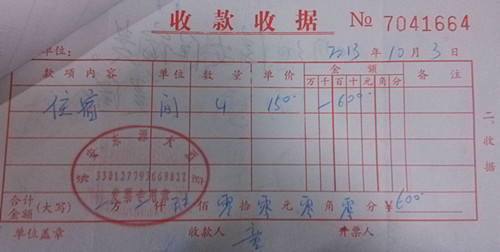 收款收据 № 7041664
单位： 2013 年 10 月 3 日
款项内容 单位 数量 单价 金额 备注
万 千 百 十 元 角 分
住宿 间 4 150 600
二、收据
合计
金额(大写) 万 仟 陆 佰 零 拾 零 元 零 角 零 分 ¥600
单位盖章 收款人 开票人